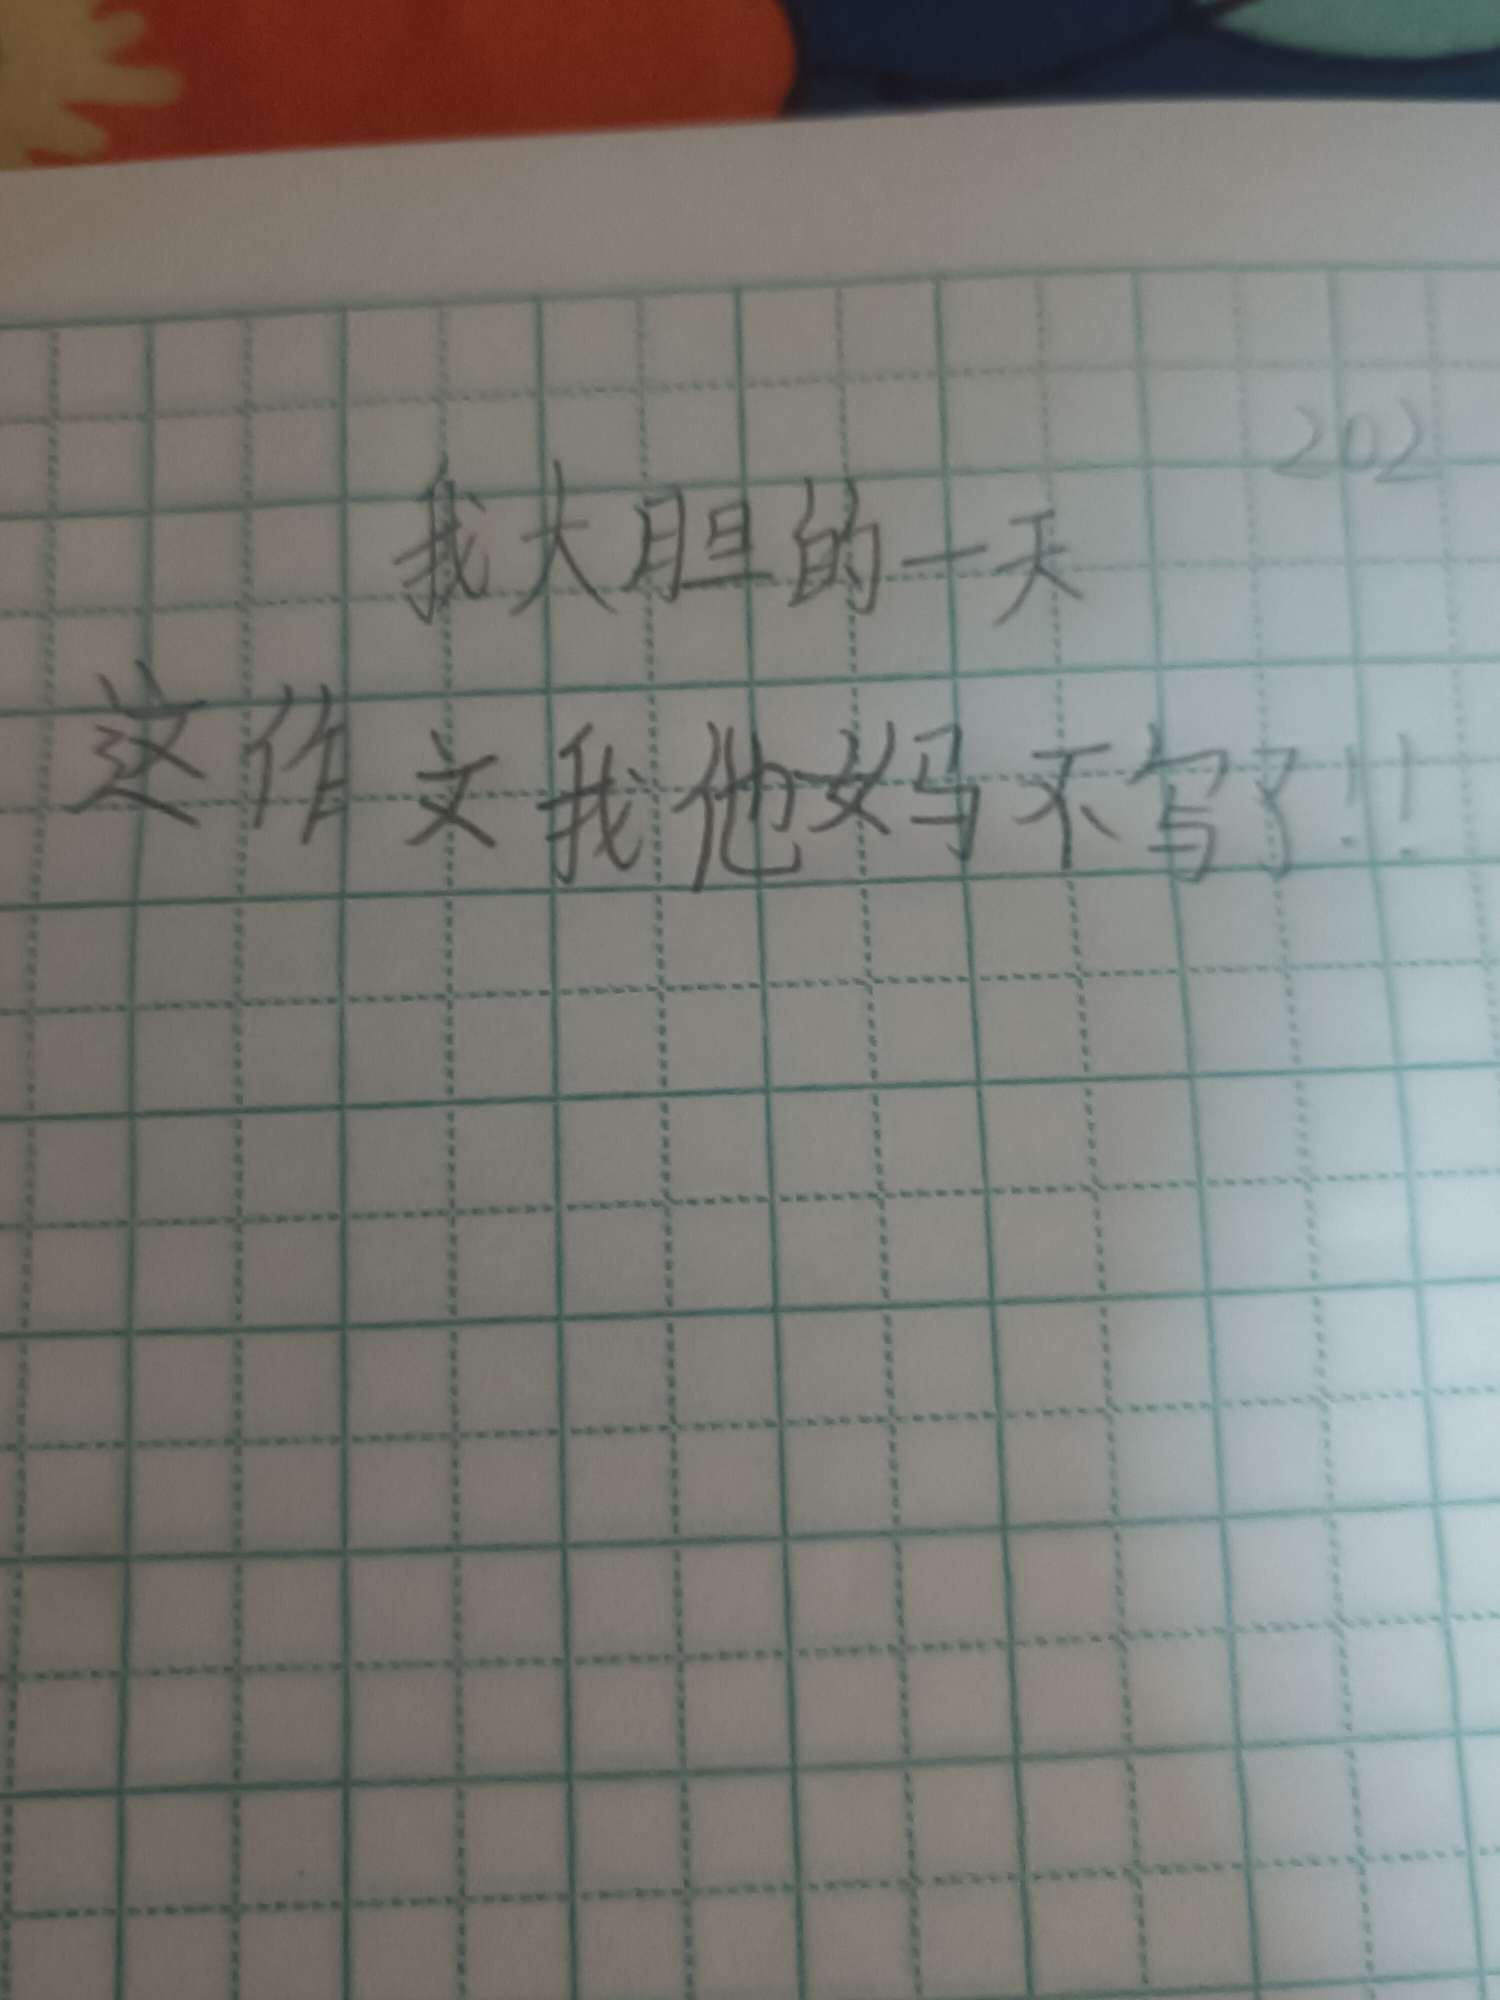 202
我大胆的一天
这作文我他妈不写了!!